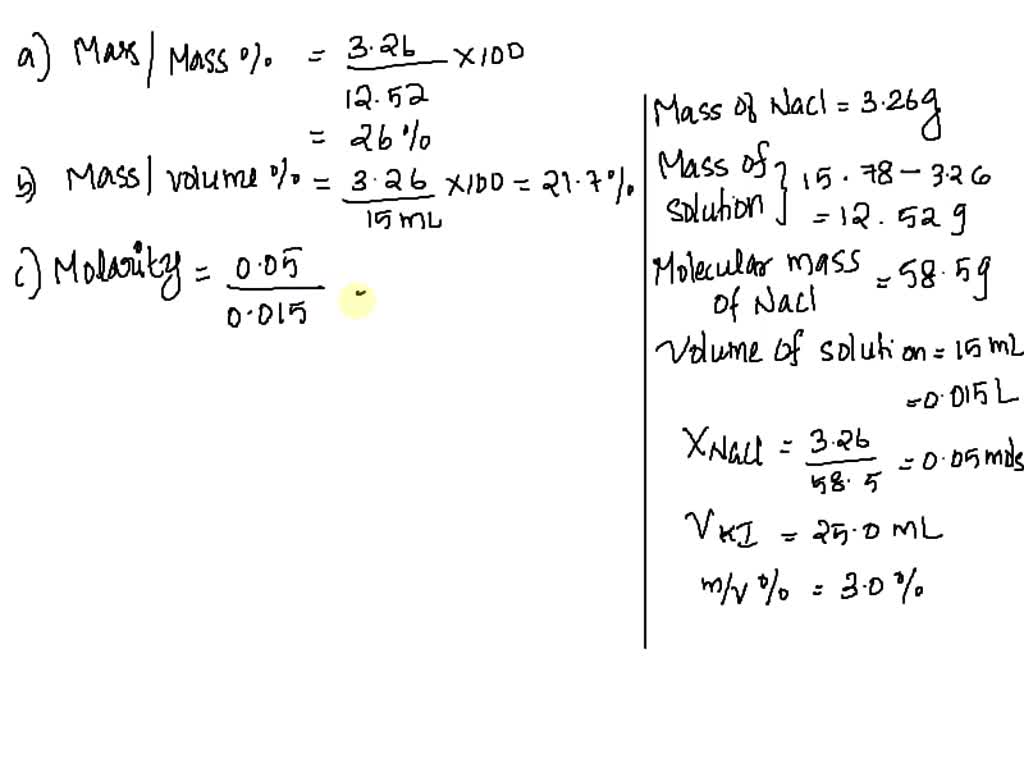 a) Mass | Mass % = 3.26 / 12.52 × 100
= 26 %
b) Mass | volume % = 3.26 / 15 mL × 100 = 21.7 %
c) Molarity = 0.05 / 0.015
Mass of Nacl = 3.26g
Mass of solution } 15.78 - 3.26
= 12.52 g
Molecular mass of Nacl = 58.5g
Volume of solution = 15 mL
= 0.015 L
XNacl = 3.26 / 58.5 = 0.05 mols
VKI = 25.0 mL
m/v % = 3.0 %